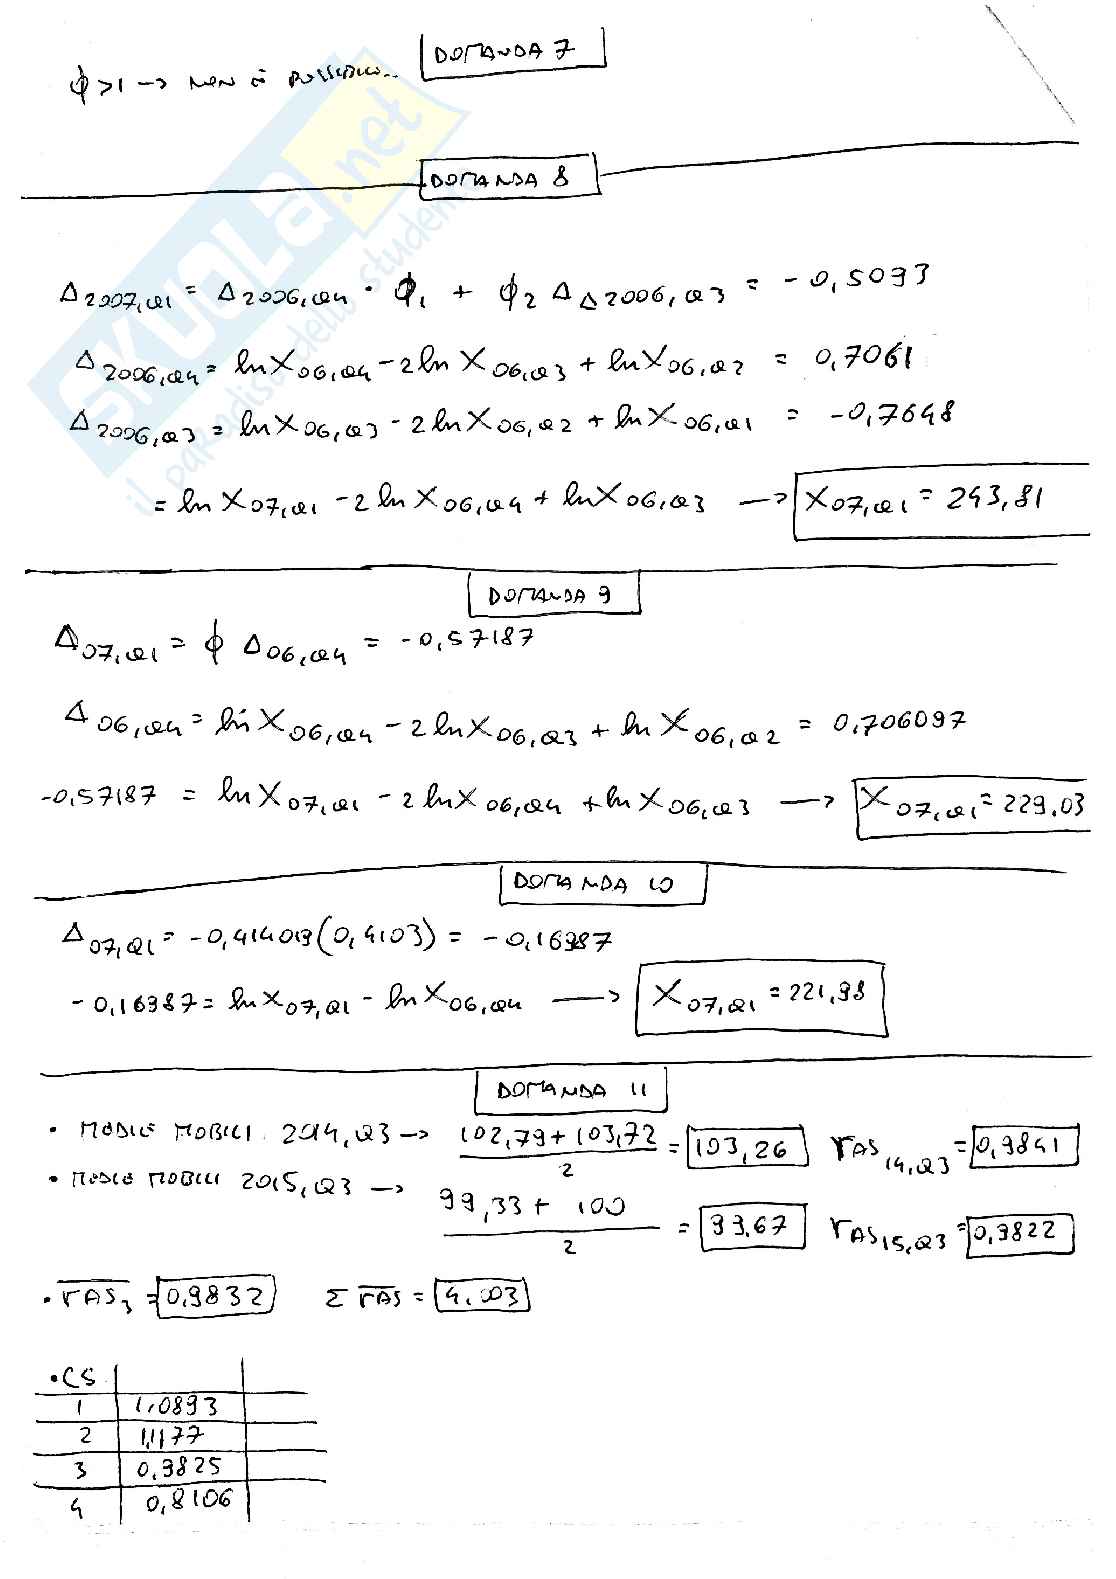 DOMANDA 7
ϕ>1 → NON È POSSIBILE..
DOMANDA 8
Δ2007,Q1 = Δ2006,Q4 · ϕ1 + ϕ2 ΔΔ2006,Q3 = -0,5093
Δ2006,Q4 = lnX06,Q4 - 2lnX06,Q3 + lnX06,Q2 = 0,7061
Δ2006,Q3 = lnX06,Q3 - 2lnX06,Q2 + lnX06,Q1 = -0,7648
= lnX07,Q1 - 2lnX06,Q4 + lnX06,Q3 → X07,Q1 = 243,81
DOMANDA 9
Δ07,Q1 = ϕ Δ06,Q4 = -0,57187
Δ06,Q4 = lnX06,Q4 - 2lnX06,Q3 + lnX06,Q2 = 0,706097
-0,57187 = lnX07,Q1 - 2lnX06,Q4 + lnX06,Q3 → X07,Q1 = 229.03
DOMANDA 10
Δ07,Q1 = -0,414019(0,4103) = -0,16987
-0,16987 = lnX07,Q1 - lnX06,Q4 → X07,Q1 = 221,98
DOMANDA 11
• MEDIE MOBILI 2014,Q3 → 102,79 + 103,72 / 2 = 103,26 rAS14,Q3 = 0,9841
• MEDIE MOBILI 2015,Q3 → 99,33 + 100 / 2 = 99.67 rAS15,Q3 = 0,9822
• rAS3 = 0,9832 Σ rAS = 4.003
• CS
1 1,0893
2 1,1177
3 0,9825
4 0,8106
SKUOLA.net
il paradiso dello studente